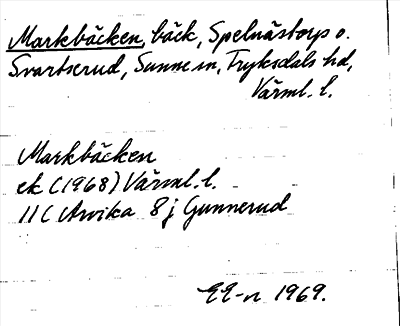 Markbäcken, bäck, Spelnästorp o.
Svartserud, Sunne sn, Fryksdals hd,
Värml. l.
Markbäcken
ek (1968) Värml. l.
11C Arvika 8j Gunnerud
EE-n 1969.